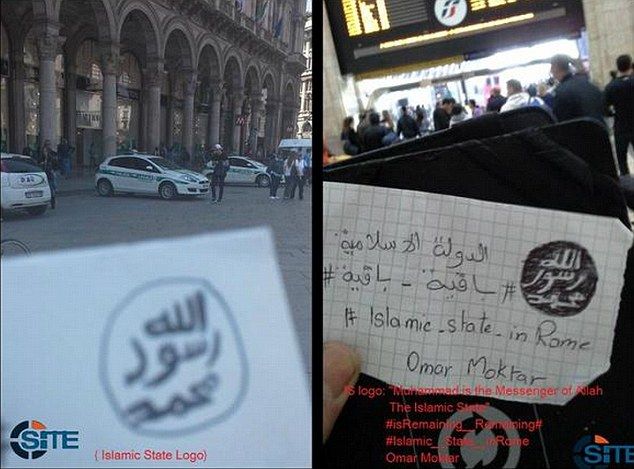 الله
رسول
محمد
SITE
( Islamic State Logo)
الدولة الاسلامية
# باقية - باقية #
الله
رسول
محمد
# Islamic_state_in Rome
Omar Moktar
IS logo: "Muhammad is the Messenger of Allah
The Islamic State"
#isRemaining__Remaining#
#Islamic__State__inRome
Omar Moktar
SITE